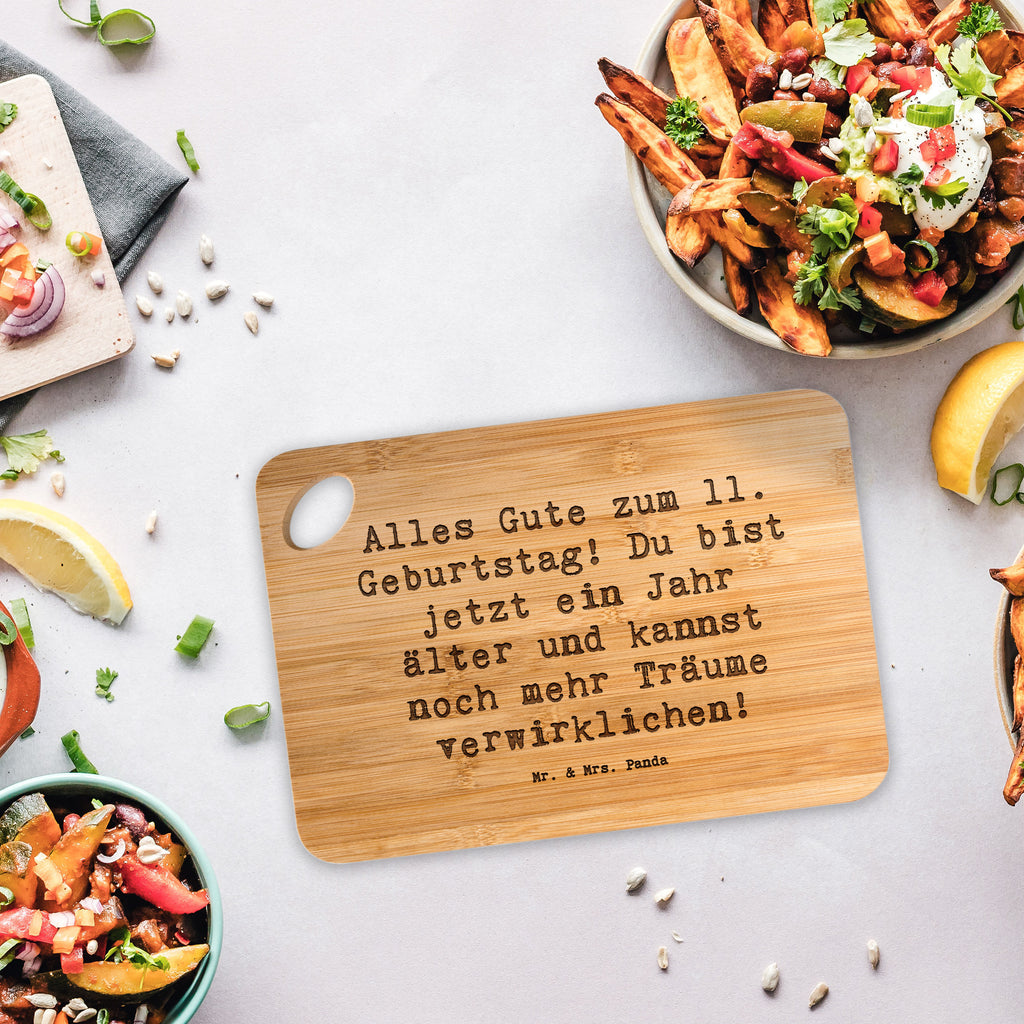 Alles Gute zum 11.
Geburtstag! Du bist
jetzt ein Jahr
älter und kannst
noch mehr Träume
verwirklichen!
Mr. & Mrs. Panda